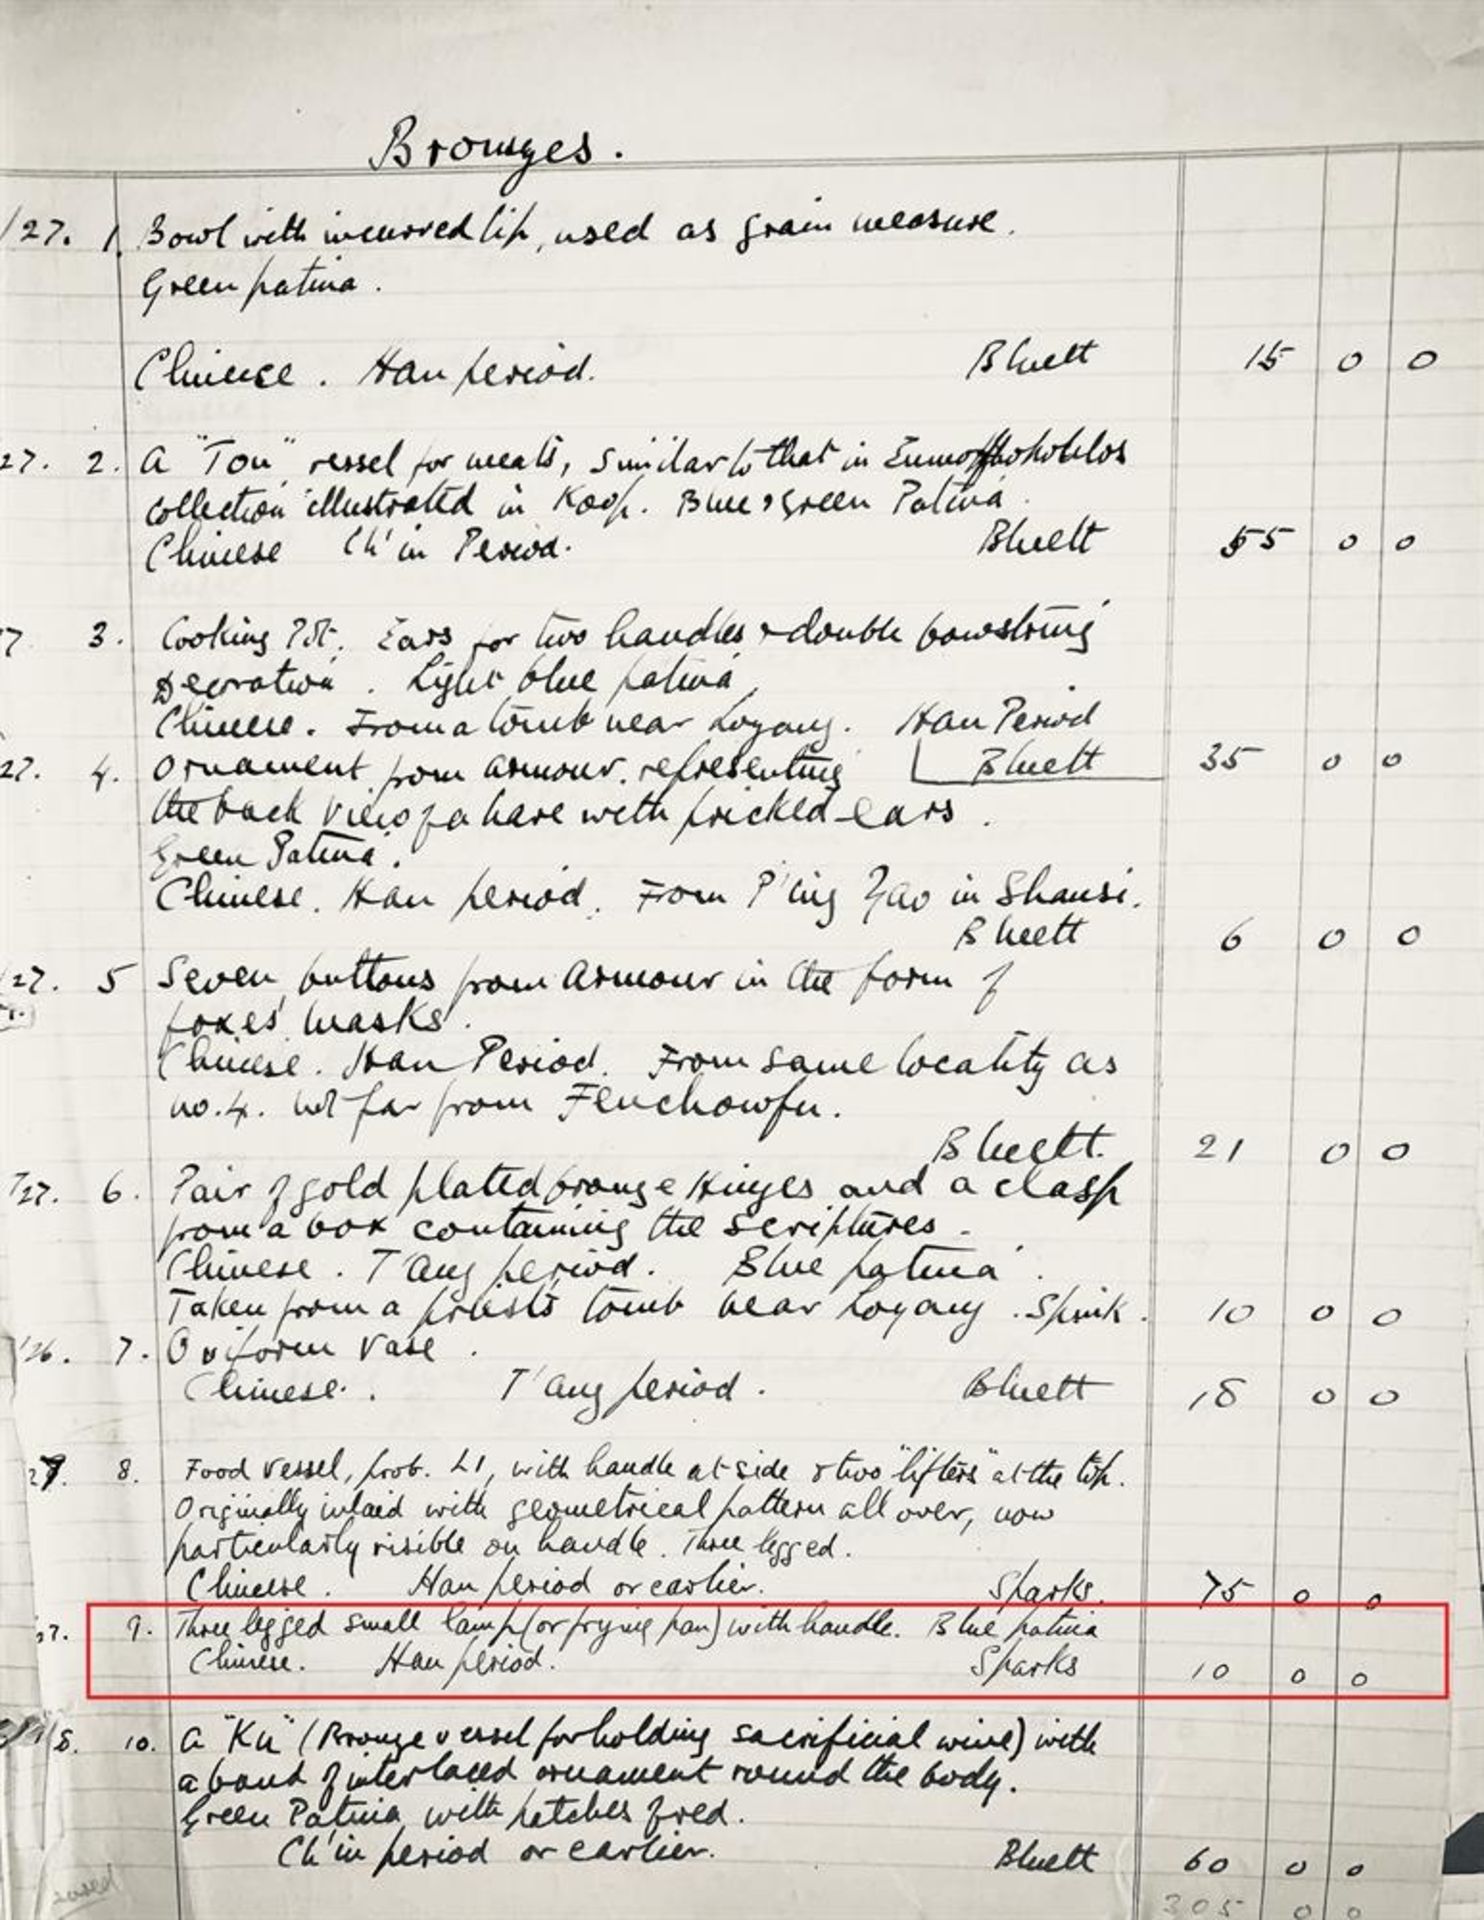 Bronzes.
/27. 1. Bowl with incurved lip, used as grain measure.
Green patina.
Chinese. Han period. Bluett 15 0 0
27. 2. A "Tou" vessel for meats, similar to that in Eumorfhohohlos
collection illustrated in Koop. Blue & green Patina.
Chinese Ch'in Period. Bluett 55 0 0
7 3. Cooking Pot. Ears for two handles & double bowstring
Decoration. Light blue patina,
Chinese. From a tomb near Loyang. Han Period
27. 4. Ornament from armour. representing Bluett 35 0 0
the back view of a hare with pricked ears.
Green Patina.
Chinese. Han period. From P'ing Yao in Shansi.
Bluett 6 0 0
/27. 5 Seven buttons from armour in the form of
foxes' masks.
Chinese. Han Period. From same locality as
no. 4. not far from Fenchowfu.
Bluett. 21 0 0
/27. 6. Pair of gold plated bronze Hinges and a clasp
from a box containing the scriptures.
Chinese. T'ang period. Blue patina.
Taken from a priests tomb near Loyang. Spink. 10 0 0
'26. 7. Oviform vase.
Chinese. T'ang period. Bluett 18 0 0
27. 8. Food vessel, prob. LI, with handle at side & two "lifters" at the top.
Originally inlaid with geometrical pattern all over, now
particularly visible on handle. Three legged.
Chinese. Han period or earlier. Sparks. 75 0 0
27. 9. Three legged small lamp (or frying pan) with handle. Blue patina
Chinese. Han period. Sparks 10 0 0
10. A "Ku" (Bronze vessel for holding sacrificial wine) with
a band of interlaced ornament round the body.
Green Patina with patches of red.
Ch'in period or earlier. Bluett 60 0 0
305 0 0